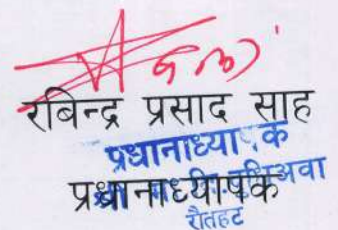 रबिन्द्र प्रसाद साह
प्रधानाध्यापक
प्रधानाध्यापक
रौतहट